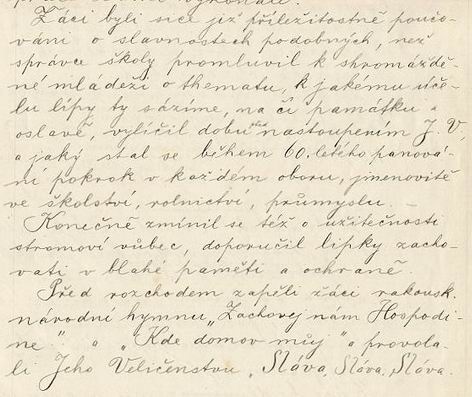 Žáci byli sice již příležitostně poučo-
váni o slavnostech podobných, než
správce školy promluvil k shromáždě-
né mládeži o thematu, k jakému úče-
lu lípy ty sázíme, na čí památku a
oslavě, vylíčil dobu před nastoupením J. V.
a jaký stal se během 60. letého panová-
ní pokrok v každém oboru, jmenovitě
ve školství, rolnictví, průmyslu. –
Konečně zmínil se též o užitečnosti
stromoví vůbec, doporučil lípky zacho-
vati v blahé paměti a ochraně
Před rozchodem zapěli žáci rakousk.
národní hymnu „Zachovej nám Hospodi-
ne" a „Kde domov můj" a provola-
li Jeho Veličenstvu „Sláva, Sláva, Sláva.